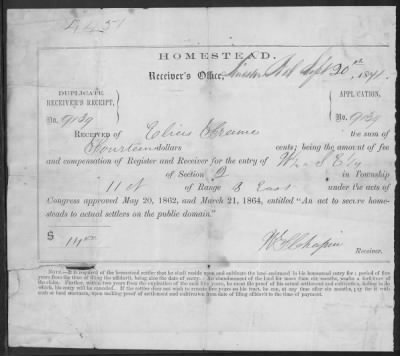 HOMESTEAD.
Receiver's Office, Neb Sept 20th, 1871.
DUPLICATE
RECEIVER'S RECEIPT,
No. 9139
APPLICATION,
No. 9139
RECEIVED of Elias the sum of
Fourteen dollars cents; being the amount of fee
and compensation of Register and Receiver for the entry of
of Section 2 in Township
11 N of Range 3 East under the acts of
Congress approved May 20, 1862, and March 21, 1864, entitled "An act to secure home-
steads to actual settlers on the public domain."
$ 14.00
Receiver.
NOTE.—It is required of the homestead settler that he shall reside upon and cultivate the land embraced in his homestead entry for a period of five
years from the time of filing the affidavit, being also the date of entry. An abandonment of the land for more than six months, works a forfeiture
of the claim. Further, within two years from the expiration of the said five years, he must file proof of his actual settlement and cultivation, failing to do
which, his entry will be canceled. If the settler does not wish to remain five years on his tract, he can, at any time after six months, pay for it with
cash or land warrants, upon making proof of settlement and cultivation from date of filing affidavit to the time of payment.